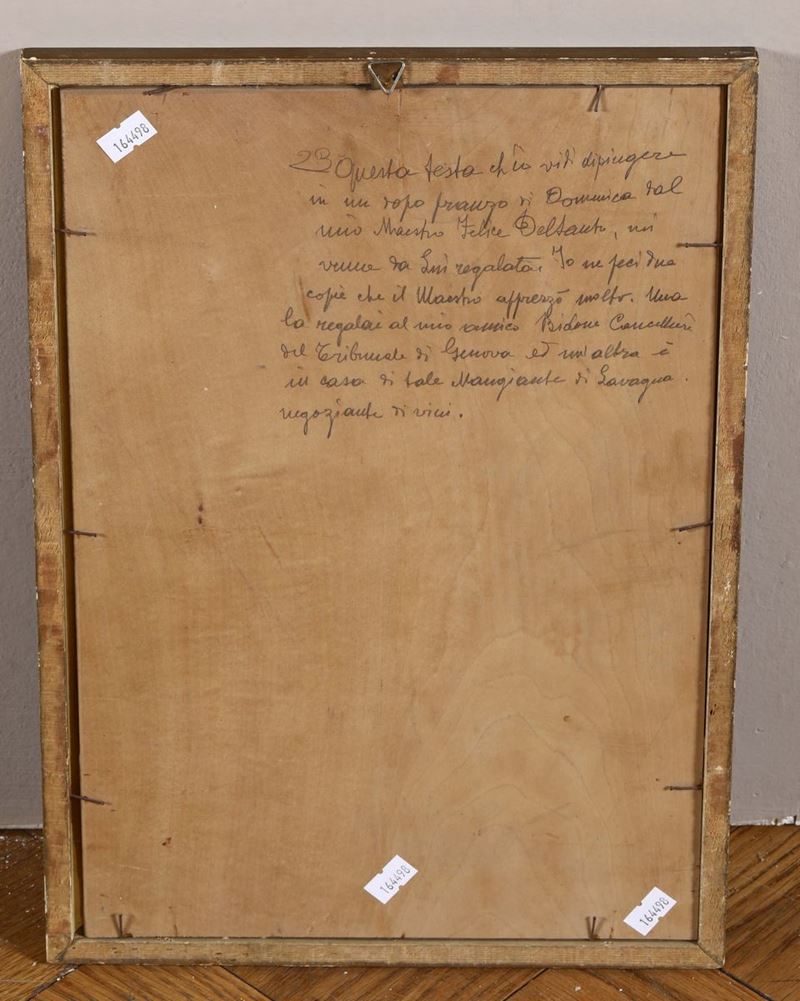 164498
23 Questa testa ch'io vidi dipingere
in un dopo pranzo di Domenica dal
mio Maestro Felice DelSanto, mi
venne da Lui regalata. Io ne feci due
copie che il Maestro apprezzò molto. Una
la regalai al mio amico Bidone Cancelliere
del Tribunale di Genova ed un'altra è
in casa di tale Mangiante di Lavagna.
negoziante di vini.
164498
164498